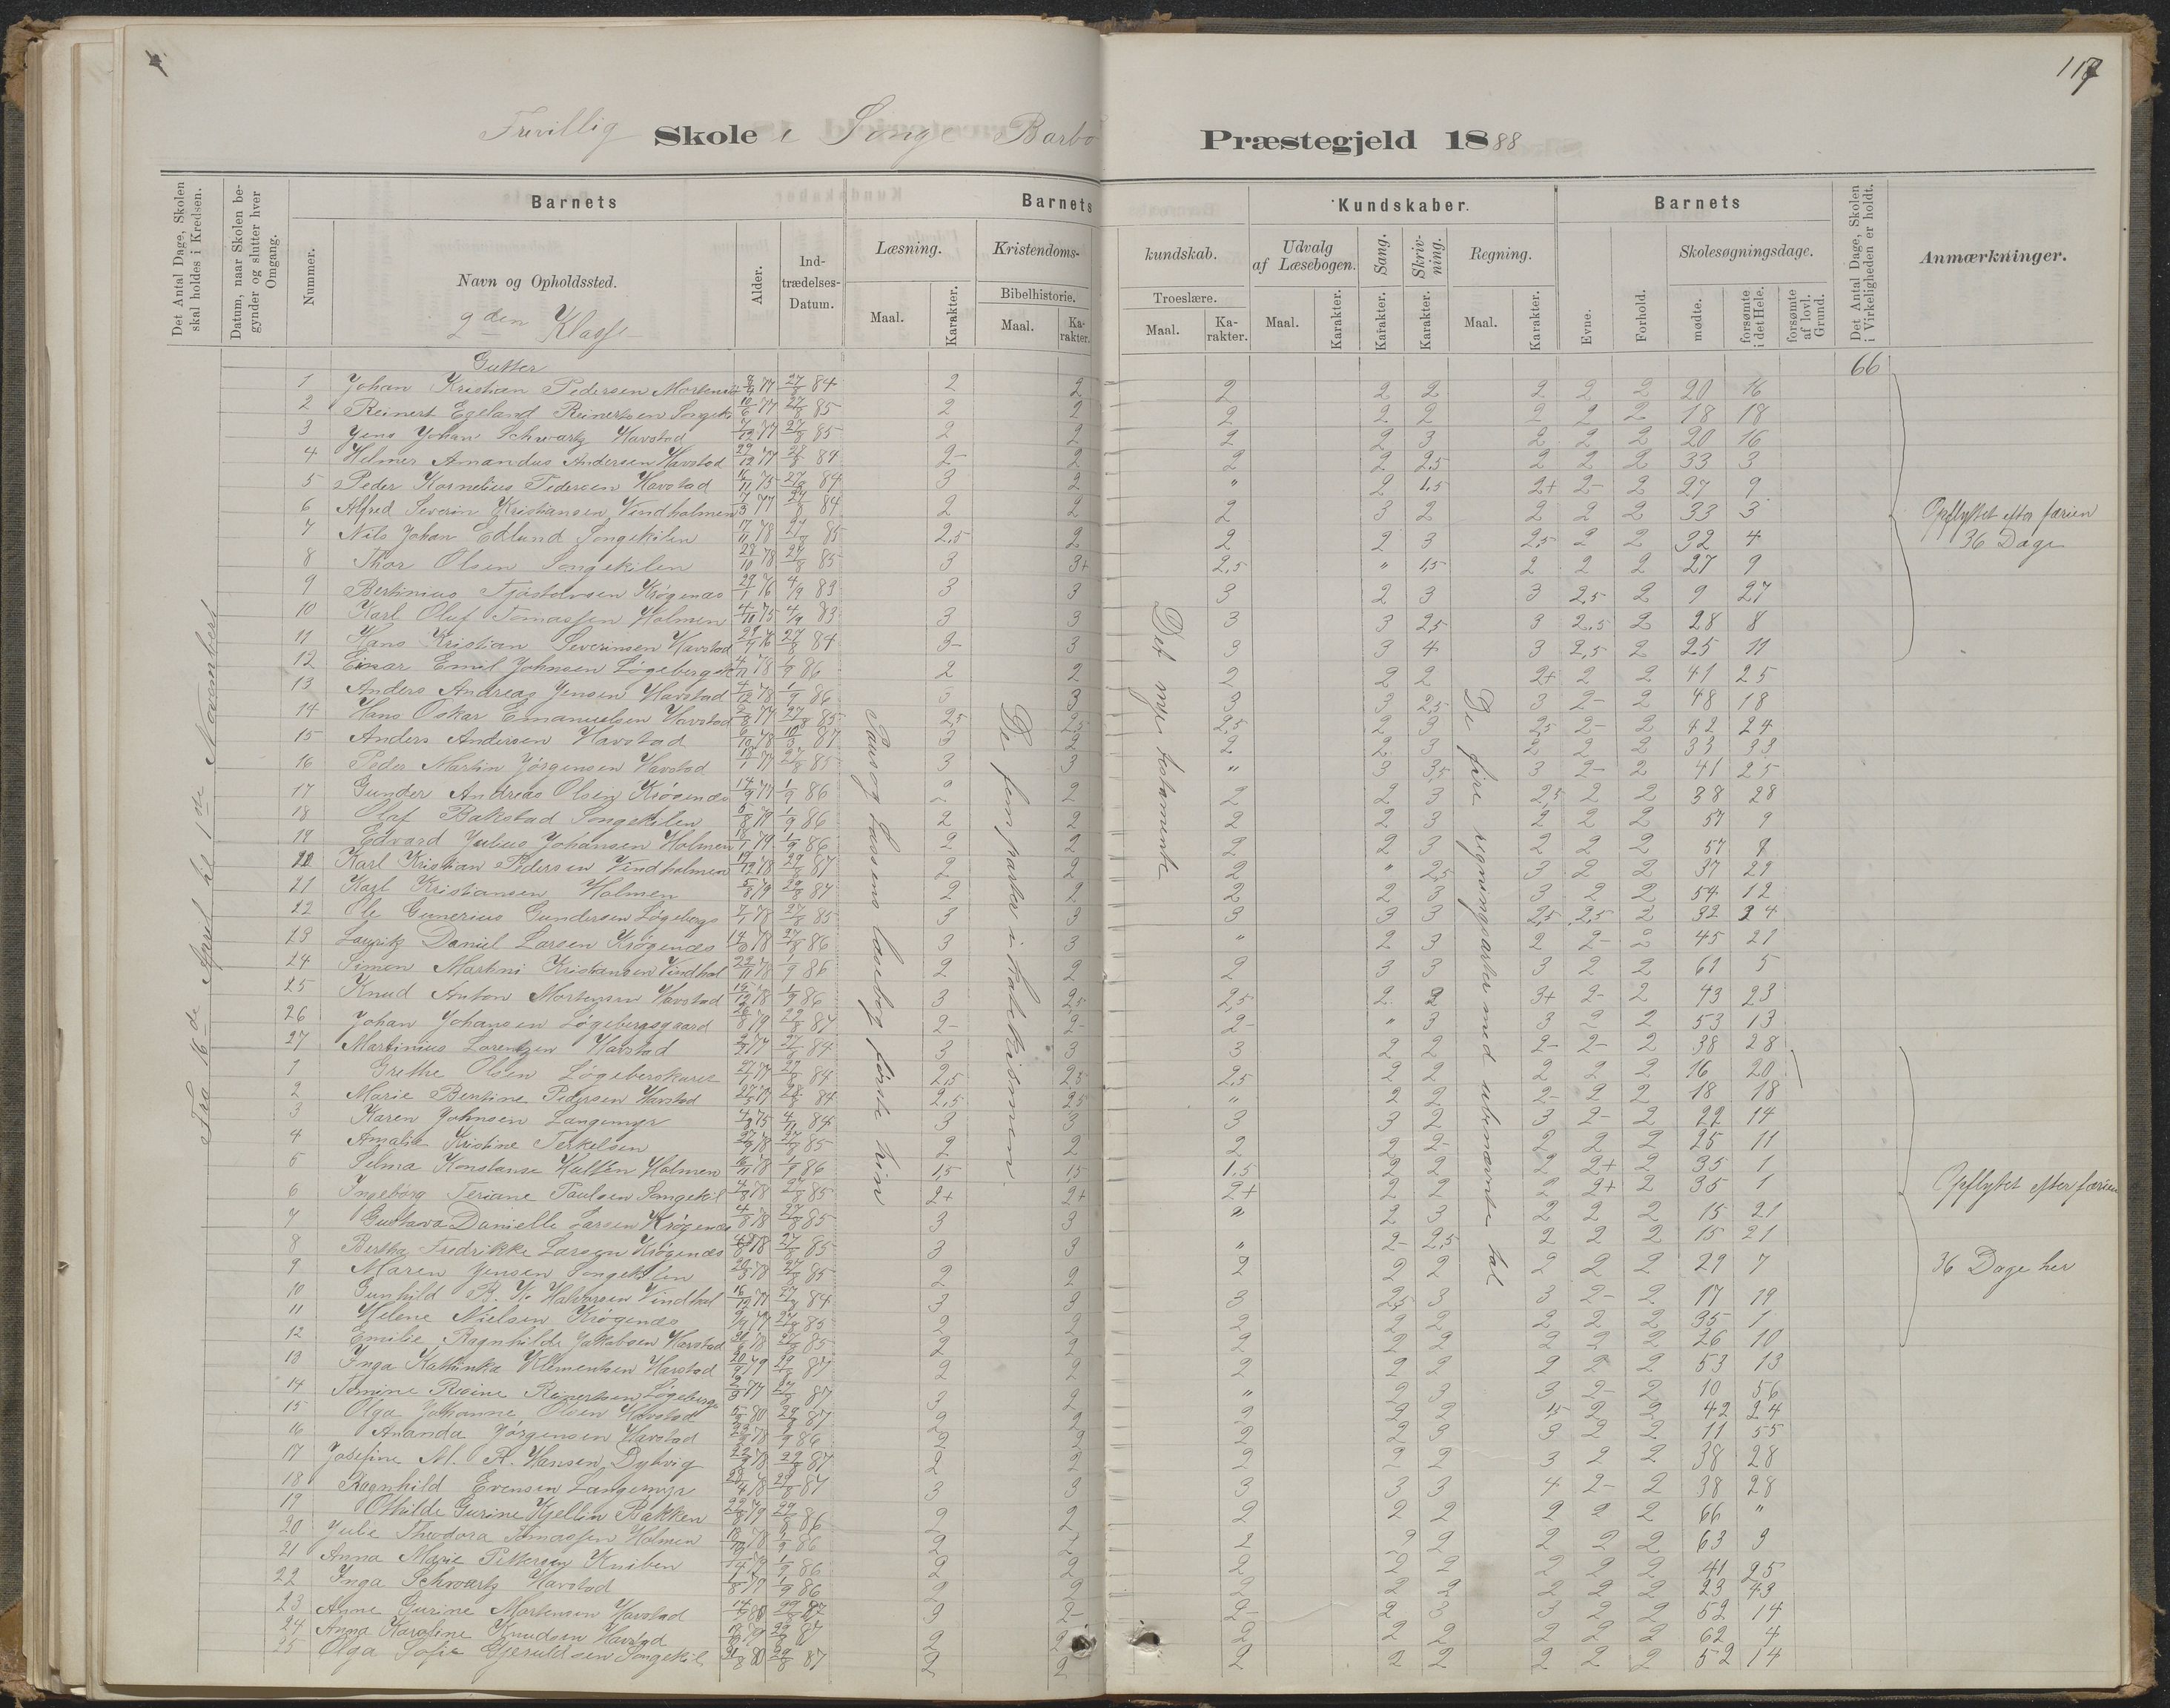 117
Frivillig Skole i Songe Barbo Præstegjeld 1888
Det Antal Dage, Skolen skal holdes i Kredsen.
Datum, naar Skolen begynder og slutter hver Omgang.
Barnets
Nummer.
Navn og Opholdssted.
Alder.
Indtrædelses-Datum.
Barnets Kundskaber.
Læsning.
Maal.
Karakter.
Kristendomskundskab.
Bibelhistorie.
Maal.
Karakter.
Troeslære.
Maal.
Karakter.
Udvalg af Læsebogen.
Maal.
Karakter.
Sang.
Karakter.
Skrivning.
Karakter.
Regning.
Maal.
Karakter.
Barnets
Evne.
Forhold.
Skolesøgningsdage.
mødte.
forsømte i det Hele.
forsømte af lovl. Grund.
Det Antal Dage, Skolen i Virkeligheden er holdt.
Anmærkninger.
2den Klasse
66
Fra 16de April til 1ste November
Paus og Lassens læsebog første trin
De fem parter i katekismen.
Det nye testamente
De fire regningsarter med ubenævnte tal
Gutter
1 Johan Kristian Pedersen 27/8 84 2 2 2 2 2 2 2 2 20 16
2 Reinert Egeland Reinertsen 10/6 77 27/8 85 2 2 2 2 2 2 2 2 18 18
3 Jens Johan Schwartz Havstad 7/12 77 27/8 85 2 2 2 2 3 2 2 2 20 16
4 Helmer Amandus Andersen Havstad 2- 2 2 2 2,5 2 2 2 33 3
5 Peder Kornelius Pedersen Havstad 16/11 75 27/8 84 3 2 " 2 1,5 2+ 2- 2 27 9
6 Alfred Severin Kristiansen Vindholmen 7/3 77 27/8 84 2 2 2 3 2 2 2 2 33 3
7 Nils Johan Edlund Songekilen 17/11 78 85 2,5 2 2 2 3 2,5 2 2 32 4
8 Thor Olsen Songekilen 28/10 78 27/8 85 3 3+ 2,5 " 1,5 2 2 2 27 9
9 Bertinius Krøgenæs 29/1 76 4/9 83 3 3 3 2 3 3 2,5 2 9 27
10 Karl Oluf Tomassen Holmen 4/11 75 4/9 83 3 3 3 3 2,5 3 2,5 2 28 8
11 Hans Kristian Severinsen Havstad 27/8 84 3- 3 3 3 4 3 2,5 2 25 11
12 Einar Emil Johnsen 1/9 86 2 2 2 2 2 2+ 2 2 41 25
13 Anders Andreas Jensen Havstad 4/12 78 1/9 86 3 3 3 3 2,5 3 2- 2 48 18
14 Hans Oskar Emanuelsen Havstad 2/8 77 27/8 85 2,5 2,5 2,5 2 3 2,5 2- 2 42 24
15 Anders Andersen Havstad 87 3 2 2 2 3 2 2 2 33 33
16 Peder Martin Jørgensen Havstad 27/8 85 3 3 " 3 3,5 3 2- 2 41 25
17 Gunder Andreas Olsen Krøgenæs 14/9 77 1/9 86 2 2 2 2 3 2,5 2 2 38 28
18 Olaf Bakstad Songekilen 1/9 86 2 2 2 2 3 2 2 2 57 9
19 Edvard Julius Johansen Holmen 1/9 86 2 2 2 2 3 2 2 2 57 9
Karl Kristian Pedersen Vindholmen 29/8 87 2 2 2 " 2,5 3 2 2 37 29
21 Karl Kristiansen Holmen 5/8 79 29/8 87 2 2 2 2 3 3 2 2 54 12
22 Ole Gunerius Gundersen Løgebergs 27/8 85 3 3 3 3 3 2,5 2,5 2 32 34
23 Lauritz Daniel Larsen Krøgenæs 86 3 3 " 2 3 2 2- 2 45 21
24 Simon Martini Kristiansen Vindhol 29/11 78 1/9 86 2 2 2 3 3 3 2 2 61 5
25 Knud Anton Mortensen Havstad 1/9 86 3 2,5 2,5 2 2 3+ 2- 2 43 23
26 Johan Johansen Løgebergsgaard 26/8 79 29/8 87 2- 2- 2- " 3 3 2 2 53 13
27 Martinius Lorentzen Havstad 27/8 84 3 3 3 2 2 2- 2- 2 38 28
1 Grethe Olsen 84 2,5 2,5 2,5 2 2 2 2 2 16 20
2 Marie Bentine Pedersen Havstad 84 2,5 2,5 " 2 2 2- 2 2 18 18
3 Karen Johnsen Langemyr 3 3 3 3 2 3 2- 2 22 14
4 Amalie Kristine Terkelsen 27/8 85 2 2 2 2 2- 2 2 2 25 11
5 Selma Konstanse Holmen 1/9 86 1,5 1,5 1,5 2 2 2 2+ 2 35 1
6 Ingeborg Teriane Paulsen Songekil 27/8 85 2+ 2+ 2+ 2 2 2 2+ 2 35 1
7 Gustava Danielle Larsen Krøgenæs 4/8 78 27/8 85 3 3 " 2 3 2 2 2 15 21
8 Bertha Fredrikke Larsen Krøgenæs 27/8 85 3 3 " 2- 2,5 2 2 2 15 21
9 Maren Jensen Songekilen 27/8 85 2 2 2 2 2 2 2 2 29 7
10 Gunhild Halvorsen Vindhol 16/12 77 27/8 84 3 3 3 2,5 3 3 2- 2 17 19
11 Helene Nielsen Krøgenæs 27/8 85 2 2 2 2 2 2 2 2 35 1
12 Emilie Ragnhilde Jakobsen Havstad 27/8 85 2 2 2 2 2 2 2 2 26 10
13 Inga Kathinka Klementsen Havstad 29/8 87 2 2 2 2 2 2 2 2 53 13
14 Tomine Regine Reinertsen Løgebergs 87 3 2 " 2 3 3 2- 2 10 56
15 Olga Johanne Olsen Havstad 29/8 87 2 2 2 2 2 1,5 2 2 42 24
16 Ananda Jørgensen Havstad 1/9 86 2 2 2 2 3 3 2 2 11 55
17 Josefine M. R. Hansen Dybvig 29/8 87 2 2 2 2 2 3 2 2 38 28
18 Ragnhild Evensen Langemyr 29/8 87 3 3 3 3 3 4 2- 2 38 28
19 Othilde Gurine Kjellin Bakken 86 2 2 2 2 2 2 2 2 66 "
20 Julie Theodora Tomassen Holmen 1/9 86 2 2 2 2 2 2 2 2 63 3
21 Anna Marie Pettersen Kniben 1/9 86 2 2 2 2 2 2 2 2 41 25
22 Inga Schwartz Havstad 1/8 79 1/9 86 2 2 2 2 2 2 2 2 23 43
23 Anne Gurine Mortensen Havstad 87 3 2- 2- 2 3 3 2 2 52 14
24 Anna Karoline Knudsen Havstad 29/8 87 2 2 2 2 2 2 2 2 62 4
25 Olga Sofie Gjeruldsen Songekil 29/8 87 2 2 2 2 2 2 2 2 52 14
Opflyttet efter færien
36 Dage
Opflyttet efter færien
36 Dage her